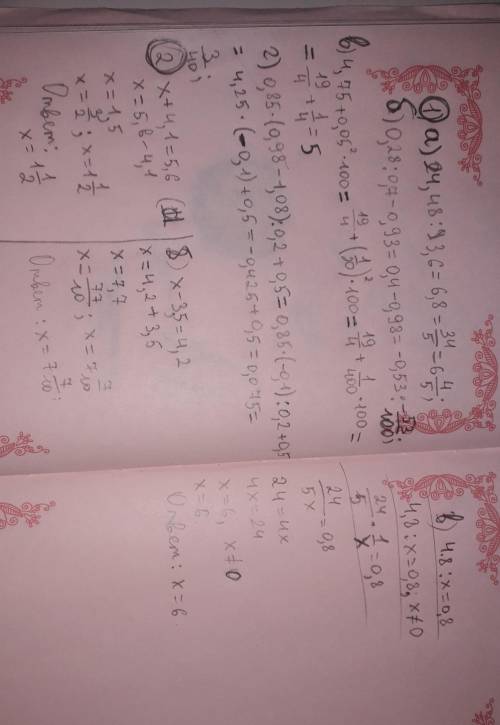 ① а) 24,48 : 3,6 = 6,8 = 34/5 = 6 4/5;
б) 0,28 : 0,7 - 0,93 = 0,4 - 0,98 = -0,53 = -53/100;
в) 4,75 + 0,05² · 100 = 19/4 + (1/20)² · 100 = 19/4 + 1/400 · 100 =
= 19/4 + 1/4 = 5
г) 0,85 · (0,98 - 1,08) : 0,2 + 0,5 = 0,85 · (-0,1) : 0,2 + 0,5
= 4,25 · (-0,1) + 0,5 = -0,425 + 0,5 = 0,075 =
3/40;
② x + 4,1 = 5,6
x = 5,6 - 4,1
x = 1,5
x = 3/2; x = 1 1/2
Ответ:
x = 1 1/2
б) x - 3,5 = 4,2
x = 4,2 + 3,5
x = 7,7
x = 77/10; x = 7 7/10
Ответ: x = 7 7/10;
в) 4.8 : x = 0,8
4,8 : x = 0,8; x ≠ 0
24/5 · 1/x = 0,8
24/5x = 0,8
24 = 4x
4x = 24
x = 6, x ≠ 0
x = 6
Ответ: x = 6